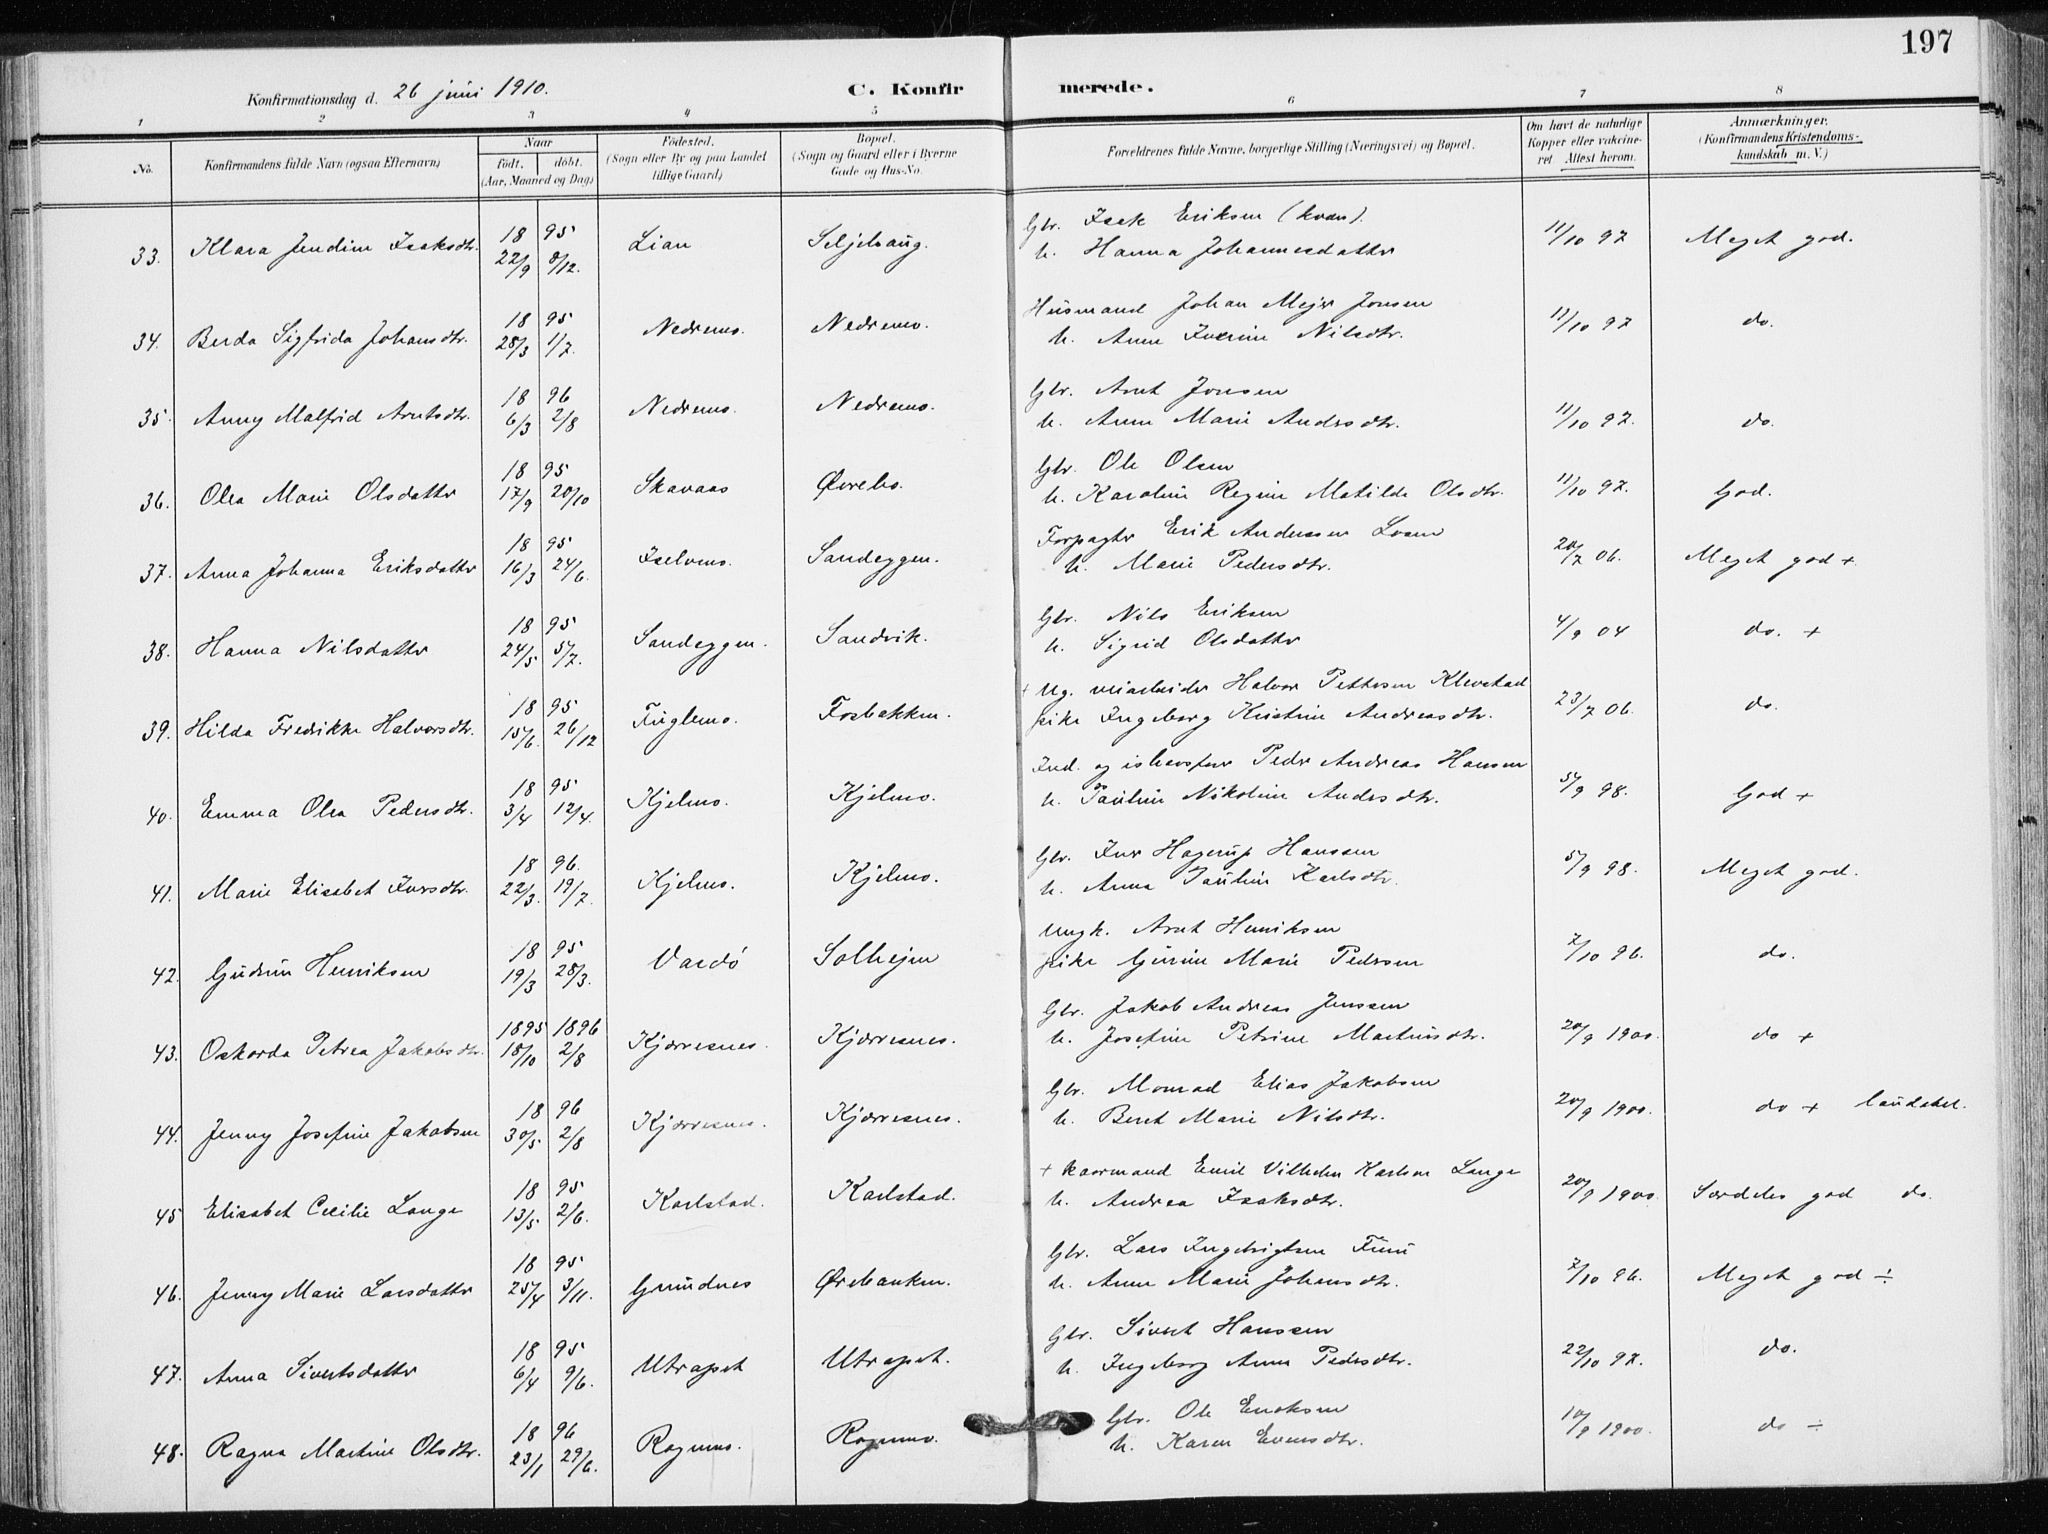 197
Konfirmationsdag d. 26 juni 1910. C. Konfirmerede.
1 2 3 4 5 6 7 8
No. Konfirmandens fulde Navn (ogsaa Efternavn) Naar født. døbt. (Aar, Maaned og Dag) Fødested. (Sogn eller By og paa Landet tillige Gaard) Bopæl. (Sogn og Gaard eller i Byerne Gade og Hus-No. Forældrenes fulde Navne, borgerlige Stilling (Næringsvei) og Bopæl. Om havt de naturlige Kopper eller vakcineret. Attest herom. Anmærkninger. (Konfirmandens Kristendomskundskab m. V.)
33. Klara Jendine Isaksdtr. 18 95 22/9 8/12. Lian Seljehaug. Gbr. Isak Eriksen (kvæn). h. Hanna Johannesdatter 11/10 97 Meget god.
34. Berda Sigfrida Johansdtr. 18 95 28/3 1/7. Nedremo. Nedremo. Husmand Johan Mejer Jonsen h. Anne Iverine Nilsdtr. 11/10 97 do.
35. Anny Malfrid Arntsdtr. 18 96 6/3 2/8 Nedremo. Nedremo. Gbr. Arnt Jonsen h. Anne Marie Andersdtr. 11/10 97. do.
36. Olea Marie Olsdatter 18 95 17/9 20/10 Skavaas Øvrebo. Gbr. Ole Olsen h. Karoline Regine Matilde Olsdtr. 11/10 97. God.
37. Anna Johanna Eriksdatter 18 95 16/3 24/6. Iselvmo. Sandeggen. Forpagter Erik Anderssen h. Marie Pedersdtr. 20/7 06. Meget god +
38. Hanna Nilsdatter 18 95 24/5 5/7. Sandeggen. Sandvik. Gbr. Nils Eriksen h. Sigrid Olsdatter 4/9 04 do. +
39. Hilda Fredrikke Halvorsdtr. 18 95 15/6. 26/12 Fuglemo. Fosbakken. + Ug. veiarbeider Halvor Pettersen Klevstad pike Ingeborg Kristine Andreasdtr. 23/7 06. do.
40. Emma Olea Pedersdtr. 18 95 3/4 12/4. Kjelmo. Kjelmo. Ind. og ishavsfarer Peder Andreas Hansen h. Pauline Nikoline Andersdtr. 5/9 98. God +
41. Marie Elisabet Iversdtr. 18 96. 22/3. 19/7. Kjelmo. Kjelmo. Gbr. Iver Hagerup Hanssen h. Anna Pauline Karlsdtr. 5/9 98. Meget god.
42. Gudrun Henriksen 18 95 19/3 28/3. Vardö Solhejm Ungk. Arnt Henriksen pike Gurine Marie Pedersen 7/10 96. do.
43. Oskarda Petrea Jakobsdtr. 1895 18/10 1896 2/8 Kjærresnes. Kjærresnes. Gbr. Jakob Andreas Jenssen h. Josefine Petrine Martinsdtr. 20/9 1900. do +
44. Jenny Josefine Jakobsen 18 96 30/5 2/8 Kjærresnes. Kjærresnes. Gbr. Monrad Elias Jakobsen h. Beret Marie Nilsdtr. 20/9 1900. do + laudabel.
45 Elisabet Cecilie Lange 18 95 13/5 2/6. Karlstad. Karlstad. + kaarmand Emil Vilhelm Karlsen Lange h. Andrea Isaksdtr. 20/9 1900. Særdeles god do.
46. Jenny Marie Larsdatter 18 95 25/4 3/11. Grundnes Ørebanken. Gbr. Lars Ingebrigtsen Furu h. Anne Marie Johansdtr. 7/10 96. Meget god ÷
47. Anna Sivertsdatter 18 95 6/4 9/6. Utrapet Utrapet. Gbr. Sivert Hanssen h. Ingeborg Anne Pedersdtr. 22/10 97. do.
48. Ragna Martine Olsdtr. 18 96 23/1 29/6. Rognmo. Rognmo. Gbr. Ole Enoksen h. Karen Evensdtr. 10/9 1900. do ÷